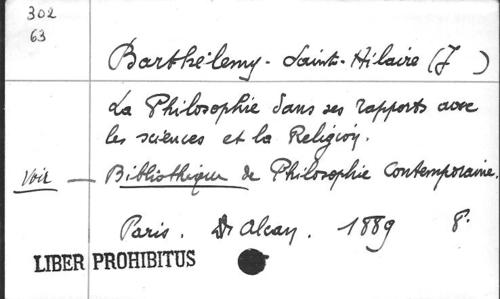 302
63
Barthélemy-Saint-Hilaire (J )
La Philosophie dans ses rapports avec
les sciences et la Religion.
Voir — Bibliothèque de Philosophie Contemporaine.
Paris. Alcan. 1889 8°
LIBER PROHIBITUS